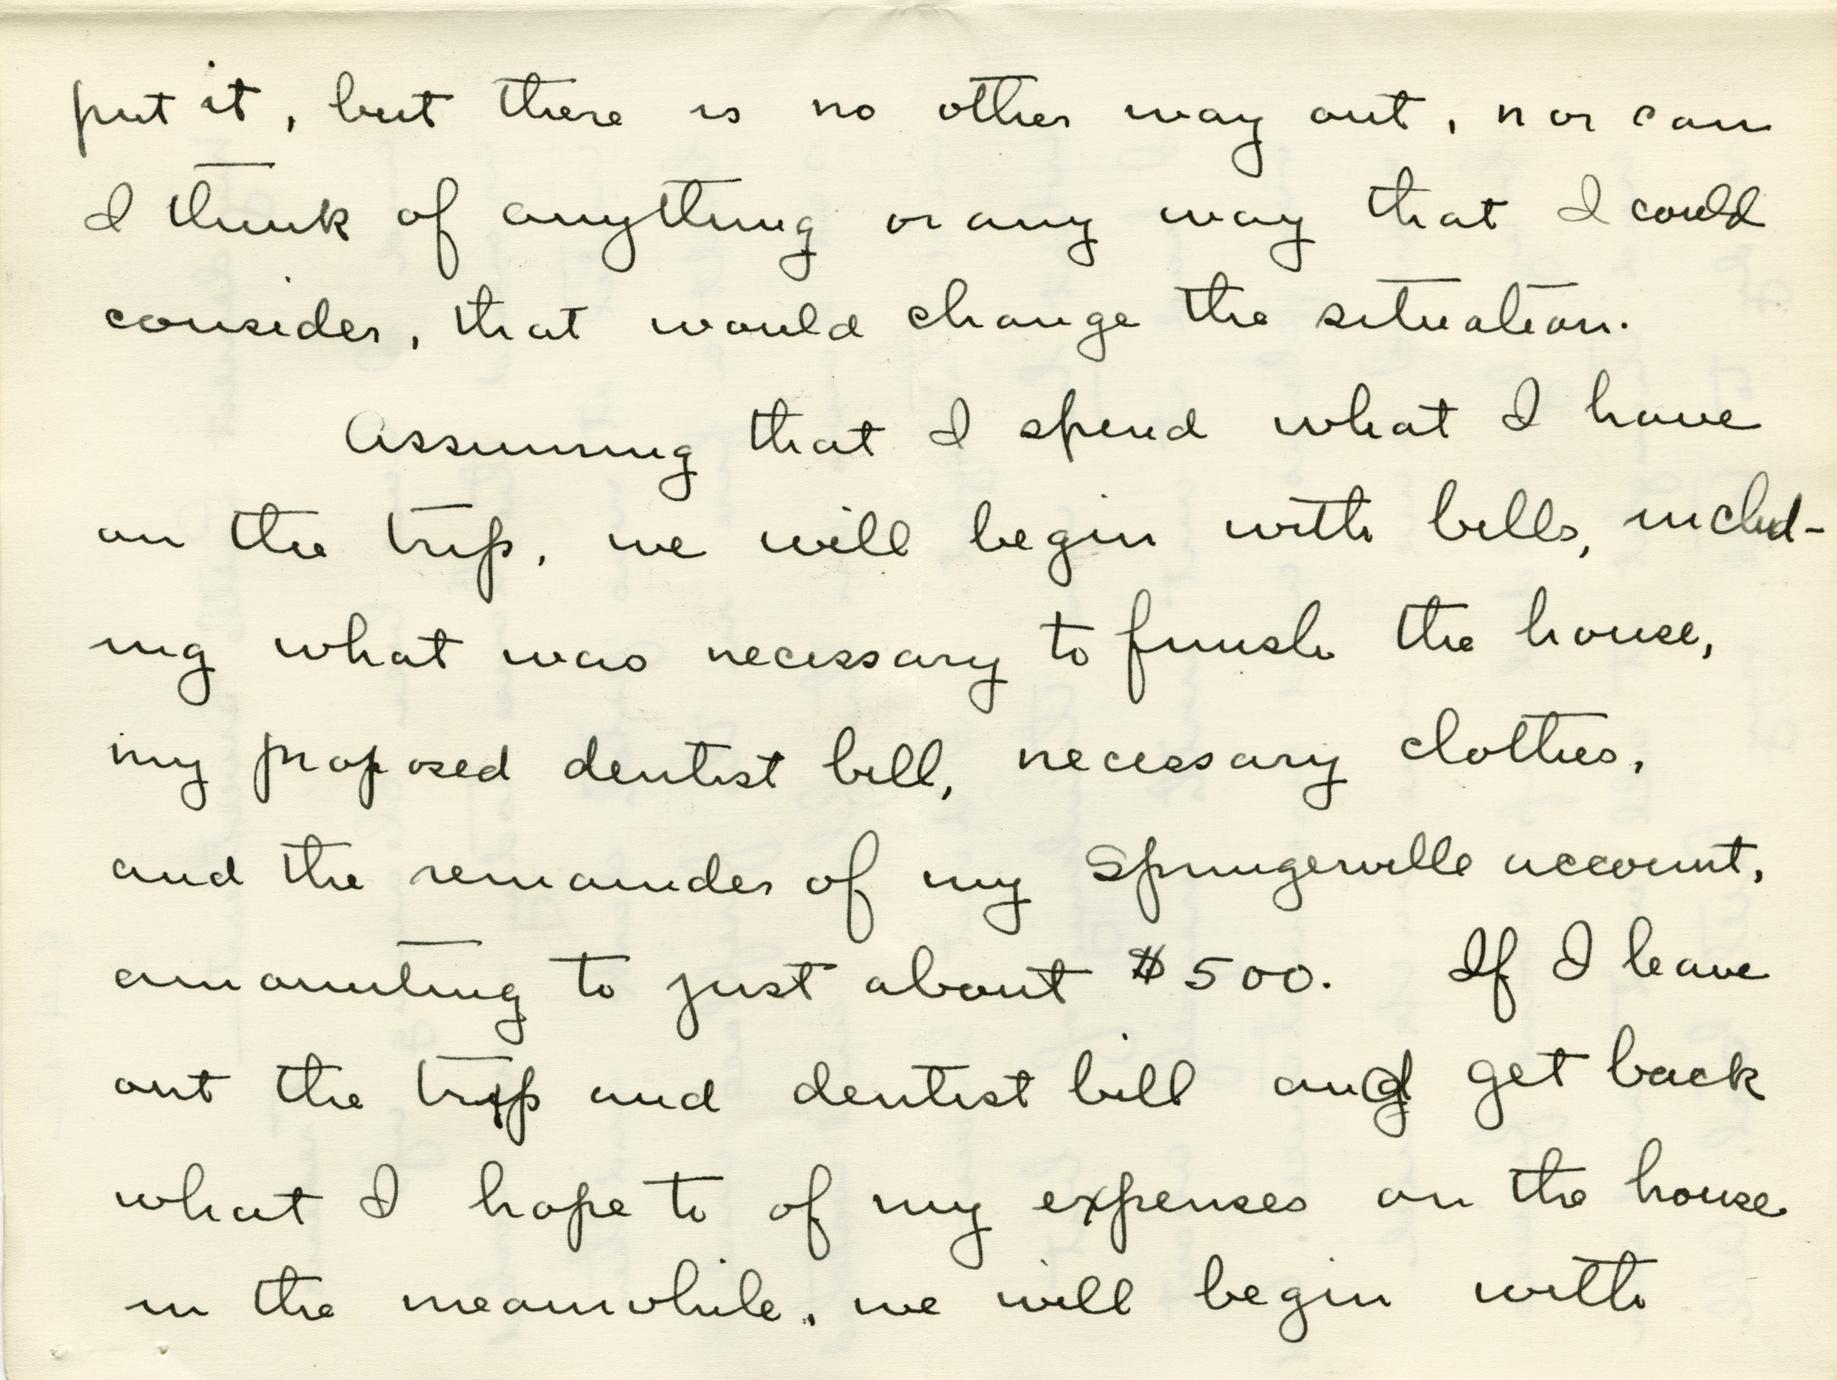 put it, but there is no other way out, nor can
I think of anything or any way that I could
consider, that would change the situation.
Assuming that I spend what I have
on the trip, we will begin with bills, includ-
ing what was necessary to finish the house,
my proposed dentist bill, necessary clothes,
and the remainder of my Springerville account,
amounting to just about $500. If I leave
out the trip and dentist bill and get back
what I hope to of my expenses on the house
in the meanwhile, we will begin with